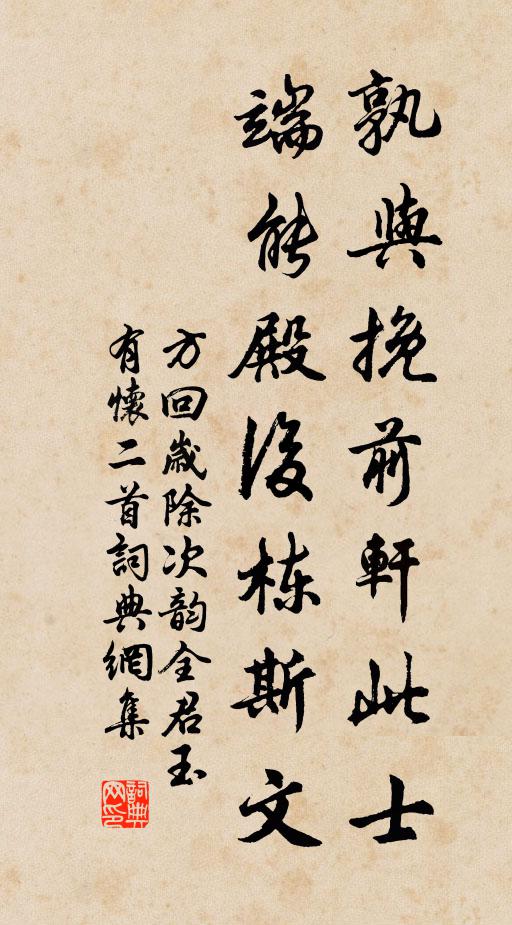 孰與挽前軒此士
端能殿後棟斯文
方回歲除次韵全君玉
有懷二首詞典網集
詞典
网印